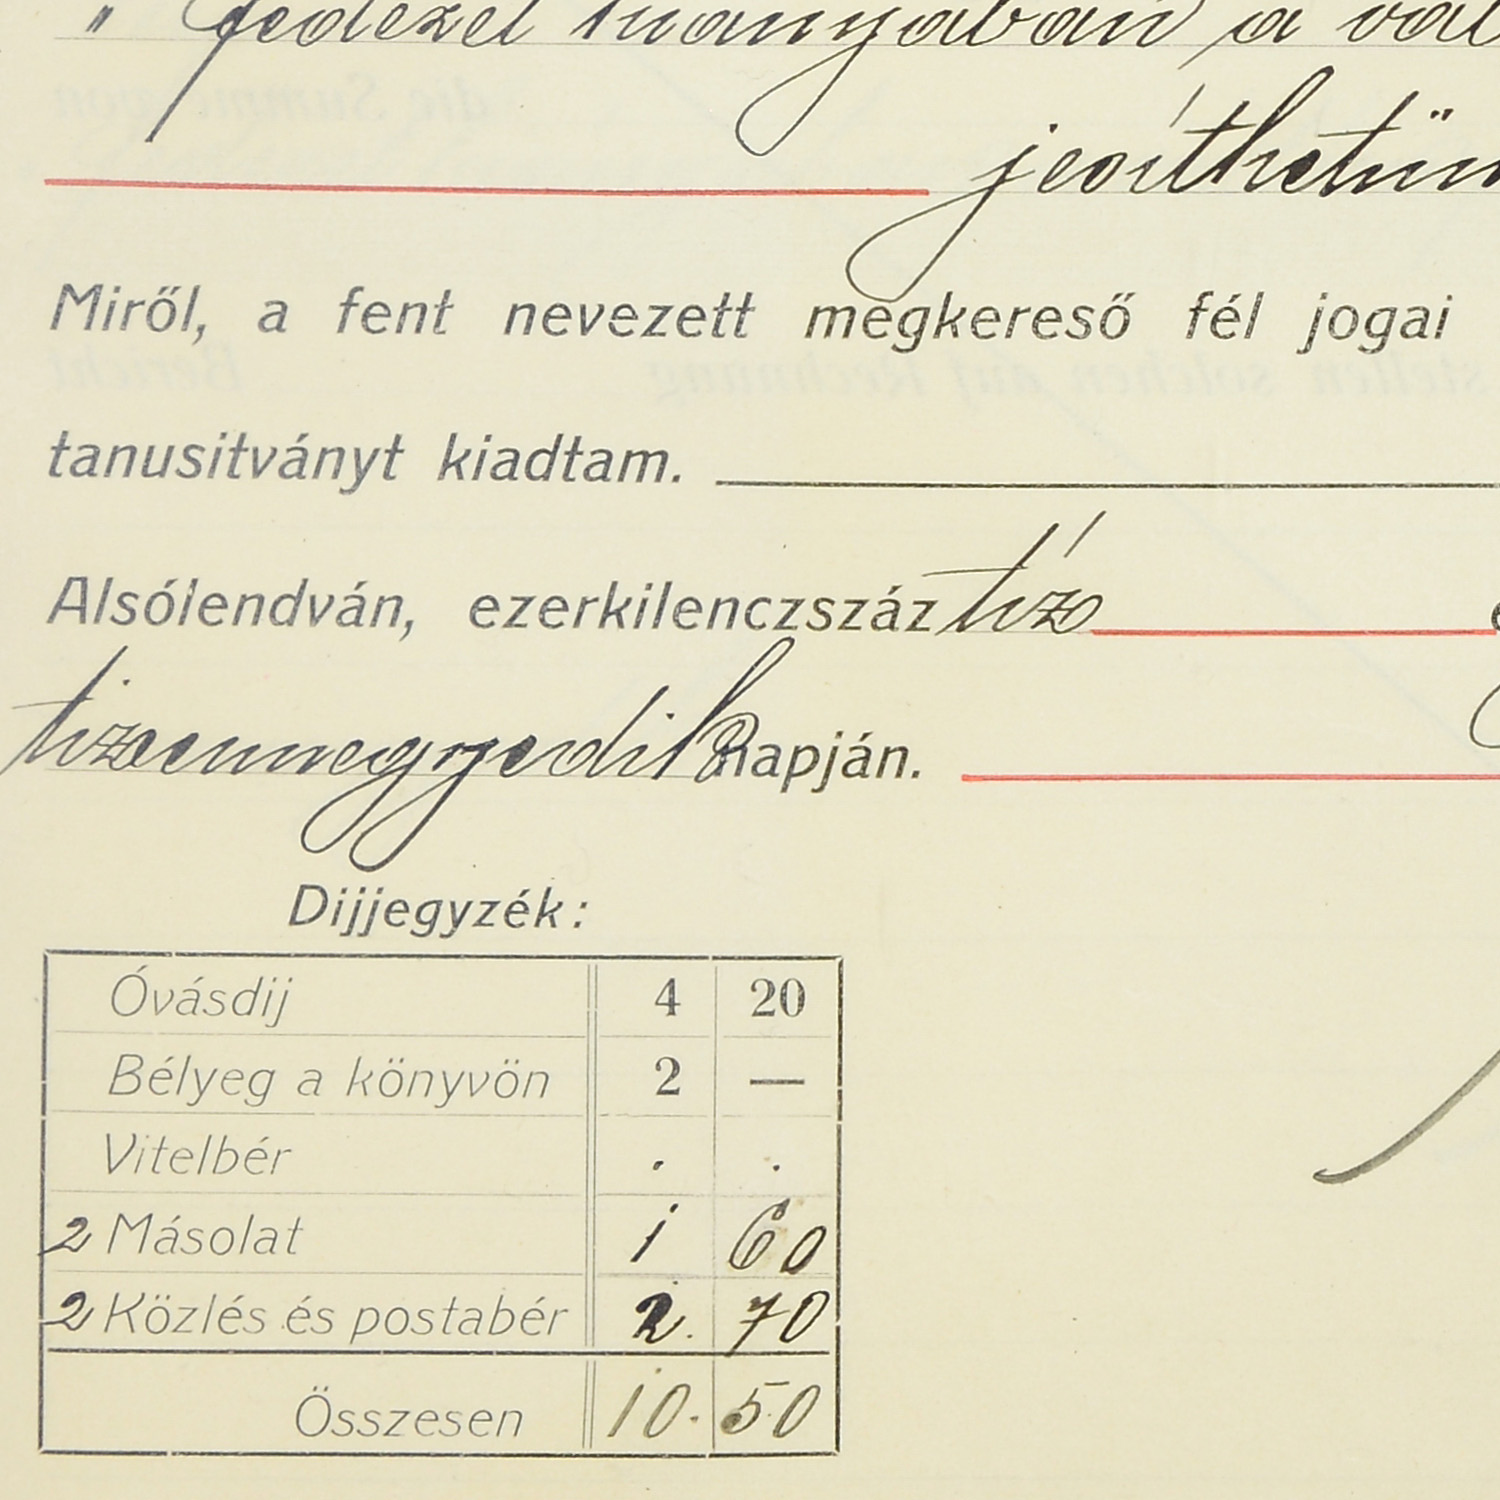 " fedezet hiányában a vál
jesíthetün
Miről, a fent nevezett megkereső fél jogai
tanusitványt kiadtam.
Alsólendván, ezerkilenczszáz tíz
tizennegyedik napján.
Dijjegyzék:
Óvásdij 4 20
Bélyeg a könyvön 2 —
Vitelbér . .
2 Másolat 1 60
2 Közlés és postabér 2. 70
Összesen 10. 50